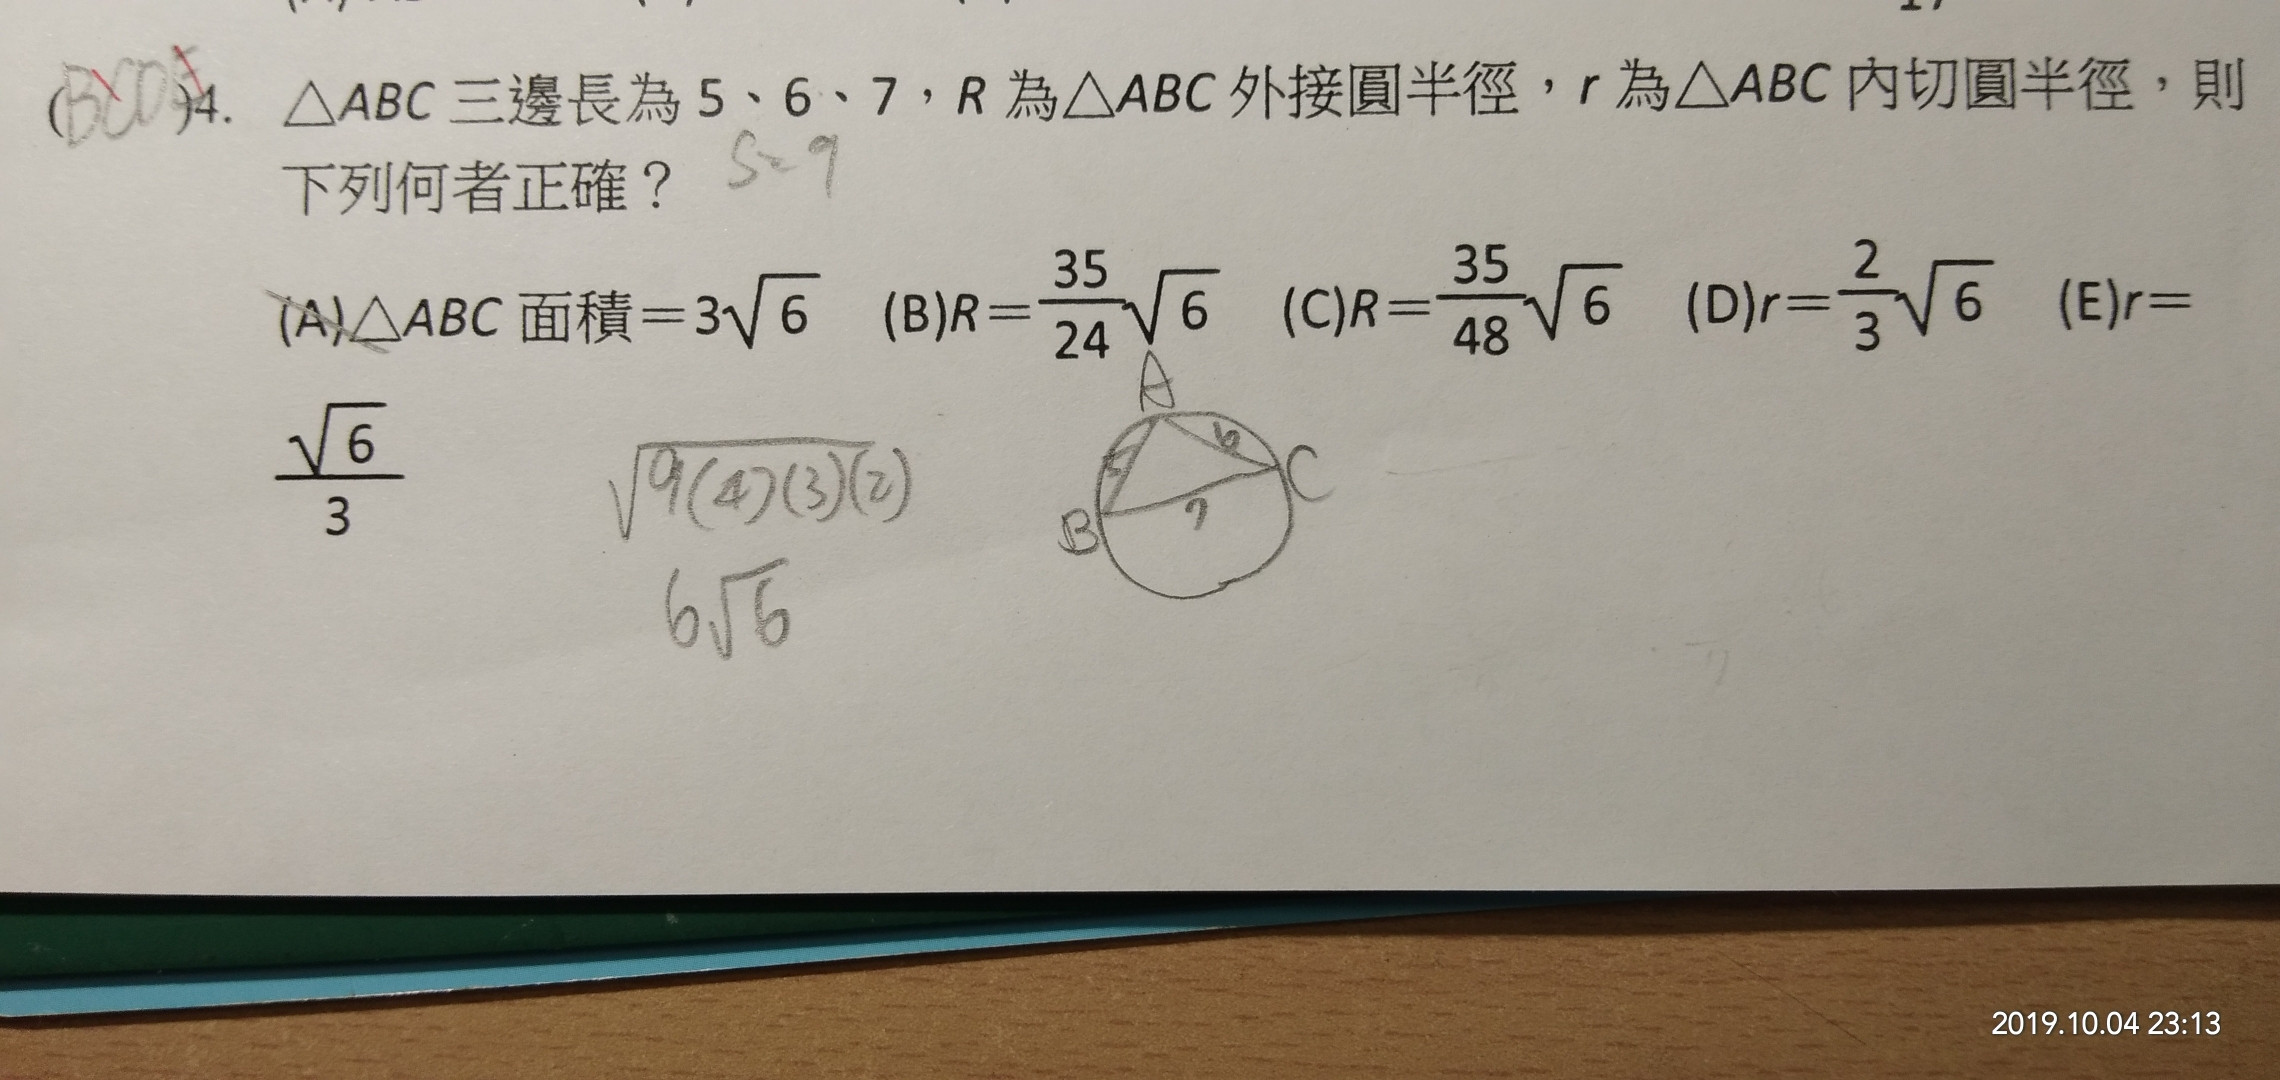 17
(BCDE)4. △ABC 三邊長為 5、6、7，R 為△ABC 外接圓半徑，r 為△ABC 內切圓半徑，則
下列何者正確？ S=9
(A)△ABC 面積＝3√6 (B)R＝35/24√6 (C)R＝35/48√6 (D)r＝2/3√6 (E)r＝
√6/3
√9(4)(3)(2)
6√6
A
5 6
B 7 C
2019.10.04 23:13